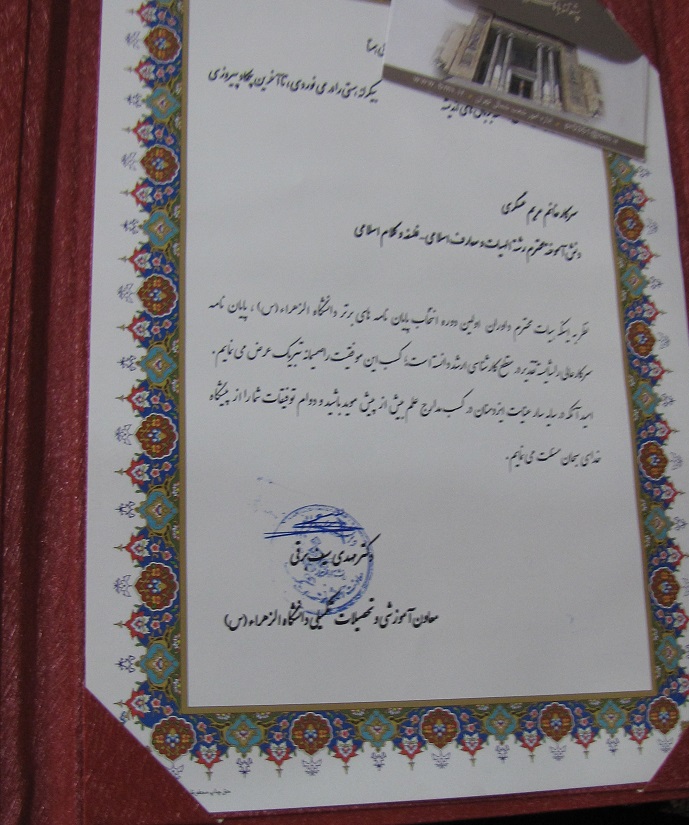 بیکرانه هستی را در می نوردی، تا آخرین پگاه پیروزی
سرکار خانم مریم عسگری
دانش آموخته محترم رشته الهیات و معارف اسلامی - فلسفه و کلام اسلامی
نظر به اینکه هیات محترم داوران اولین دوره انتخاب پایان نامه های برتر دانشگاه الزهراء (س)، پایان نامه
سرکارعالی را شایسته تقدیر در مقطع کارشناسی ارشد دانسته است؛ کسب این موفقیت را صمیمانه تبریک عرض می نمایم.
امید آنکه در سایه سار عنایت ایزد منان در کسب مدارج علم بیش از پیش موید باشید و دوام توفیقات شما را از پیشگاه
خدای سبحان مسئلت می نمایم.
دکتر مهدی سیف برقی
معاون آموزشی و تحصیلات تکمیلی دانشگاه الزهراء (س)